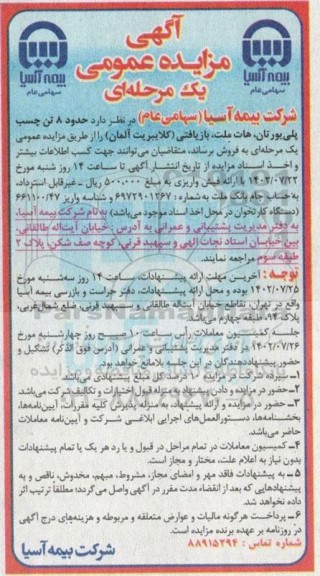 آگهی
مزایده عمومی
یک مرحله‌ای
بیمه آسیا
سهامی عام
بیمه آسیا
سهامی عام
شرکت بیمه آسیا (سهامی عام) در نظر دارد حدود ۸ تن چسب
پلی یورتان، هات ملت، بازیافتی (کلایبریت آلمان) را از طریق مزایده عمومی
یک مرحله‌ای به فروش برساند، متقاضیان می‌توانند جهت کسب اطلاعات بیشتر
و اخذ اسناد مزایده از تاریخ انتشار آگهی تا ساعت ۱۴ روز شنبه مورخ
۱۴۰۲/۰۷/۲۲ با ارائه فیش واریزی به مبلغ ۵۰۰،۰۰۰ ریال - غیرقابل استرداد،
به حساب جام بانک ملت به شماره: ۶۹۷۲۹۰۱۲۶۷ و شناسه واریز ۶۶۱۱۰۰۴۷
(دستگاه کارتخوان در محل اخذ اسناد موجود می‌باشد) به نام شرکت بیمه آسیا،
به دفتر مدیریت پشتیبانی و عمرانی به آدرس: خیابان آیت‌اله طالقانی،
بین خیابان استاد نجات الهی و سپهبد قرنی، کوچه صف شکن، پلاک ۲
طبقه سوم مراجعه نمایند.
توجه: آخرین مهلت ارائه پیشنهادات، ساعت ۱۴ روز سه‌شنبه مورخ
۱۴۰۲/۰۷/۲۵ بوده و محل ارائه پیشنهادات، دفتر حراست و بازرسی بیمه آسیا
واقع در تهران، تقاطع خیابان آیت‌اله طالقانی و سپهبد قرنی، ضلع شمال‌غربی،
پلاک ۹۴، طبقه چهارم می‌باشد.
جلسه کمیسیون معاملات رأس ساعت ۱۰ صبح روز چهارشنبه مورخ
۱۴۰۲/۰۷/۲۶ در دفتر مدیریت پشتیبانی و عمرانی (آدرس فوق الذکر) تشکیل و
حضور پیشنهاددهندگان در این جلسه بلامانع خواهد بود.
۱- سپرده شرکت در مزایده ۱۰ درصد کل مبلغ پیشنهادی می‌باشد.
۲- حضور در مزایده و دادن پیشنهاد به منزله قبول اختیارات و تکالیف شرکت می‌باشد.
۳- حضور در مزایده و ارائه پیشنهاد به منزله پذیرش کلیه مقررات، آیین‌نامه‌ها،
بخشنامه‌ها، دستورالعمل‌های اجرایی ابلاغی شرکت و آیین‌نامه معاملات
حاضر می‌باشد.
۴- کمیسیون معاملات در تمام مراحل در قبول و یا رد هر یک یا تمام پیشنهادات
بدون نیاز به اعلام علت، مختار و مجاز است.
۵- به پیشنهادات فاقد مهر و امضای مجاز، مشروط، مبهم، مخدوش، ناقص و به
پیشنهادهایی که بعد از انقضاء مدت مقرر در آگهی واصل می‌گردد؛ مطلقاً ترتیب اثر
داده نخواهد شد.
۶- پرداخت هرگونه مالیات و عوارض متعلقه و مربوطه و هزینه‌های درج آگهی
در روزنامه بر عهده برنده مزایده است.
شماره تماس: ۸۸۹۱۵۲۹۴
شرکت بیمه آسیا